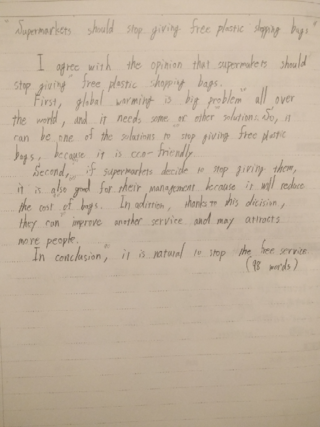 "Supermarkets should stop giving free plastic shopping bags"
I agree with the opinion that supermakets should
stop giving free plastic shopping bags.
First, global warming is big problem all over
the world, and it needs some or other solutions. So, it
can be one of the solutions to stop giving free plastic
bags, because it is eco-friendly.
Second, if supermarkets decide to stop giving them,
it is also good for their management because it will reduce
the cost of bags. In addition, thanks to this dicision,
they can improve another service and may attracts
more people.
In conclusion, it is natural to stop the free service
(98 words)